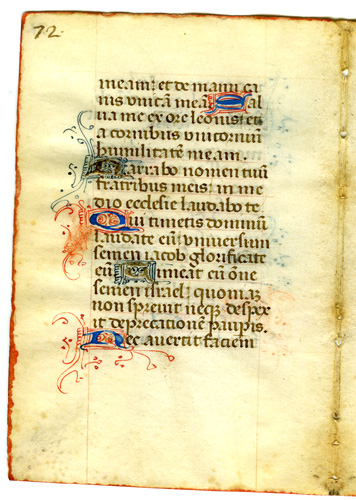 72.
meam: et de manu ca
nis unicā meā Sal
va me ex ore leonis: et
a cornibus unicornuū
humilitatē meam.
Narrabo nomen tuū
fratribus meis: in me
dio ecclesie laudabo te
Qui timetis dominū
laudate eū: universum
semen iacob glorificate
eū Timeat eū ōne
semen israel: quoniaz
non sprevit neqz despex
it deprecationē paupis.
Nec avertit faciem